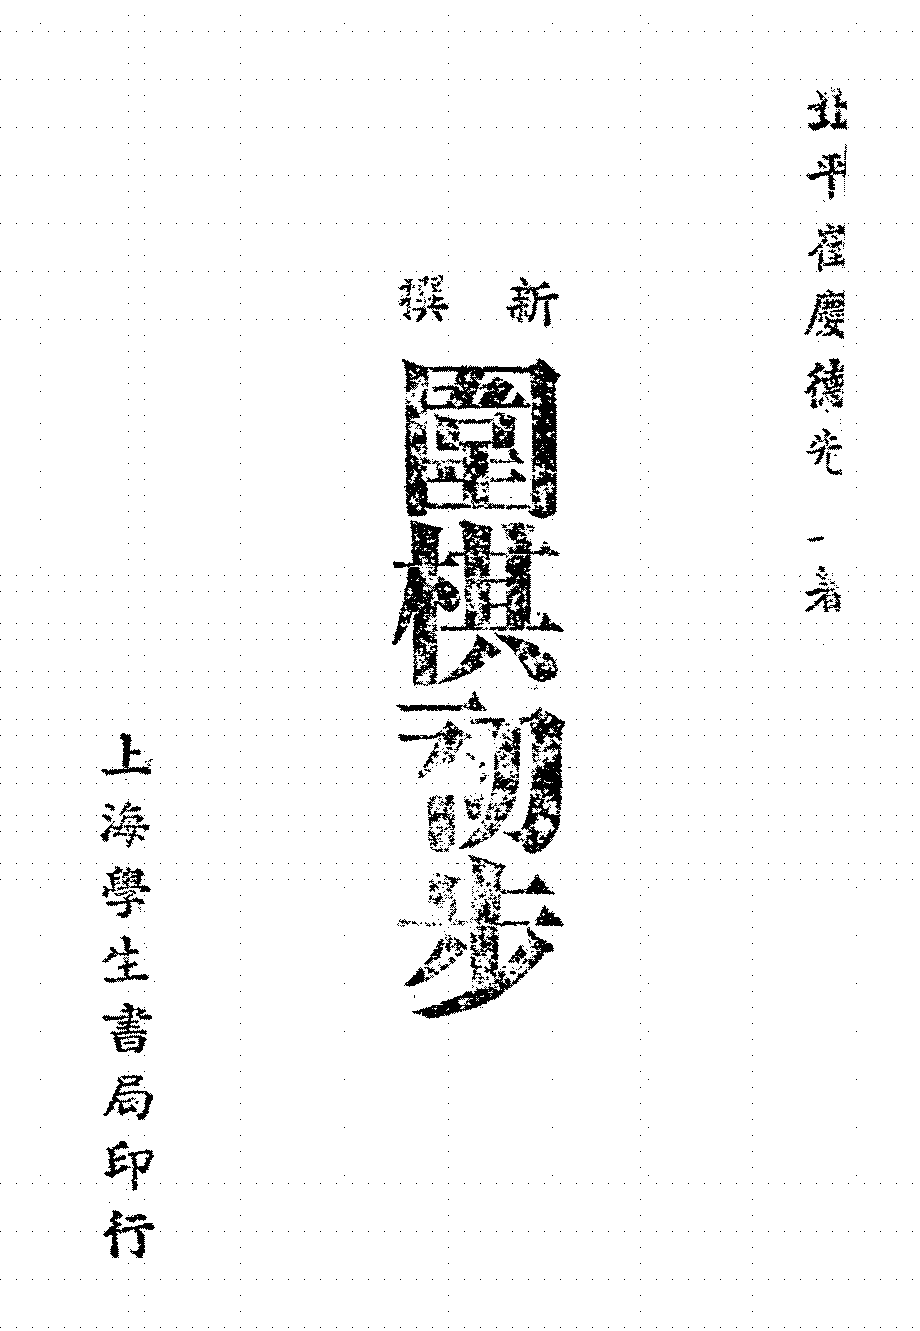 北平崔慶德先 著
新撰
圍棋初步
上海學生書局印行